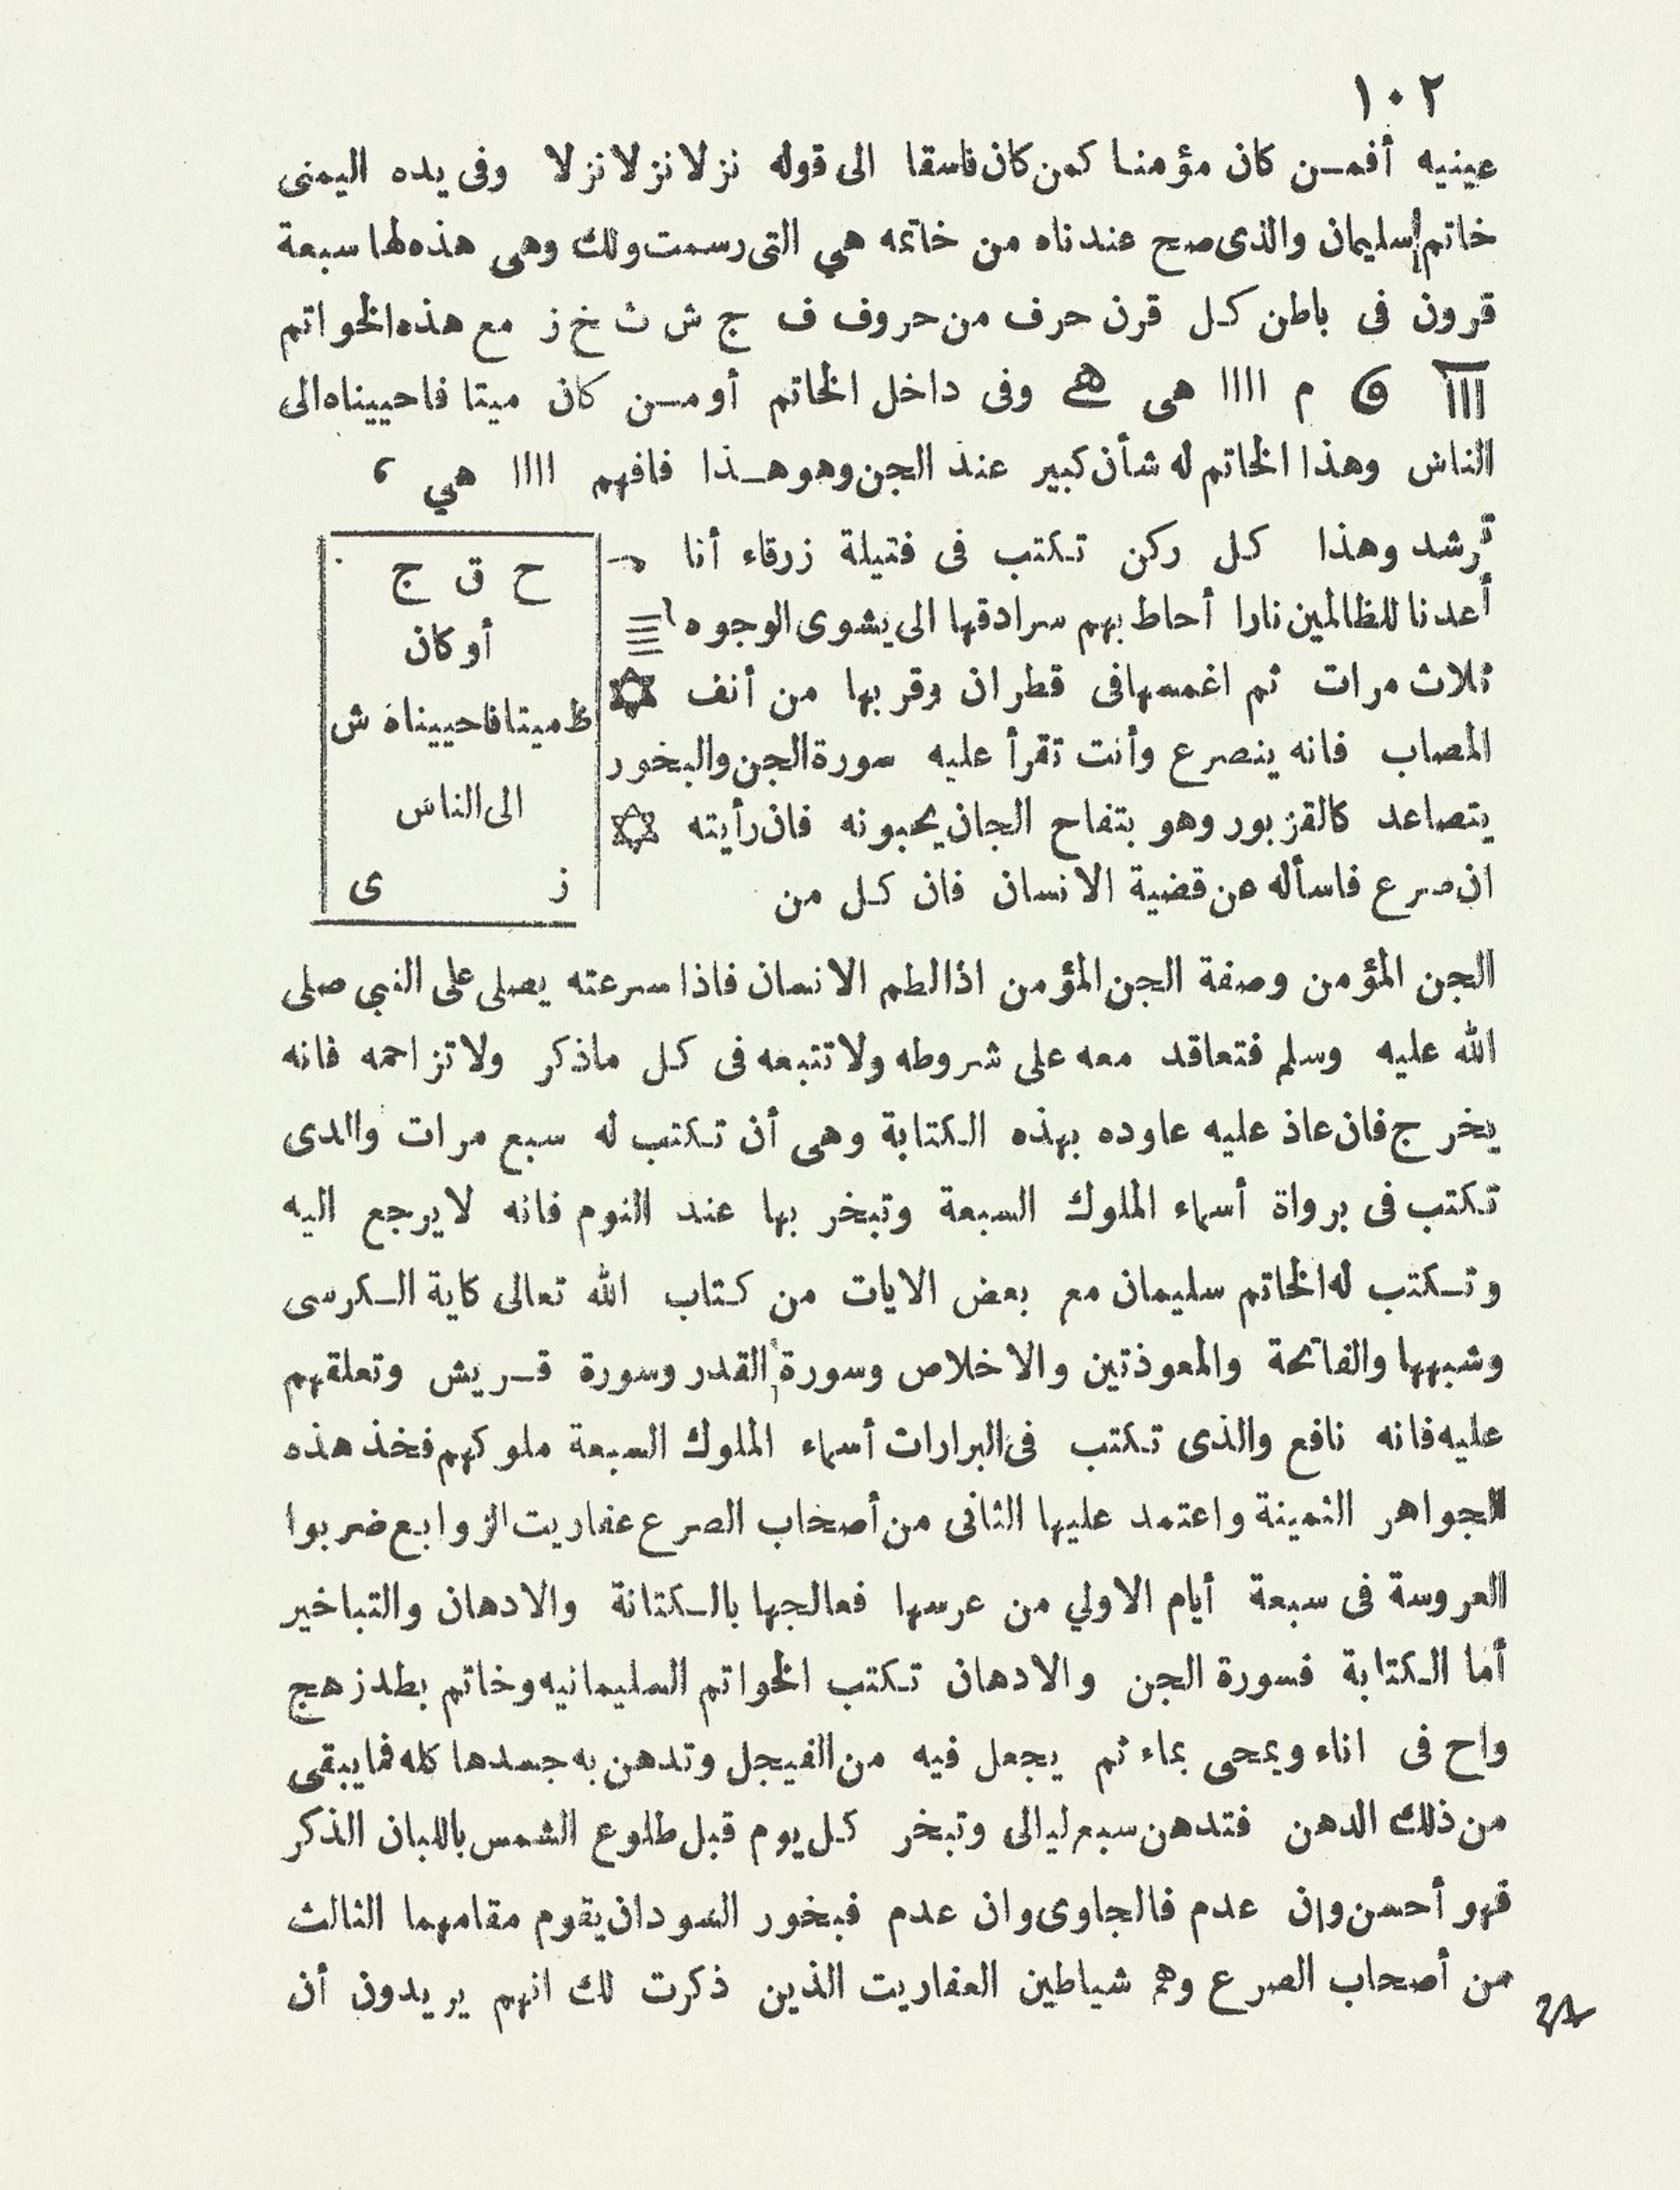 ١٠٢
عينيه أفمـن كان مؤمنـا كمن كان فاسقا الى قوله نزلا نزلا نزلا وفى يده اليمنى
خاتم سليمان والذى صح عندناه من خاتمه هي التى رسمت ولك وهى هذه لها سبعة
قرون فى باطن كـل قرن حرف من حروف ف ج ش ث خ ز مع هذه الخواتم
م ااا هى وفى داخل الخاتم أو مـن كان ميتا فاحييناه الى
الناس وهذا الخاتم له شأن كبير عند الجن وهو هـذا فافهم اااا هي
ترشد وهذا كـل ركن تكتب فى فتيلة زرقاء أنا
أعدنا للظالمين نارا أحاط بهم سرادقها الى يشوى الوجوه
ثلاث مرات ثم اغمسها فى قطران وقربها من أنف ✡
المصاب فانه ينصرع وأنت تقرأ عليه سورة الجن والبخور
يتصاعد كالقزبور وهو بتفاح الجان يحبونه فان رأيته ✡
ان صرع فاسأله عن قضية الانسان فان كـل من
ح ق ج
أو كان
ظ ميتا فاحييناه ش
الى الناس
ز ى
الجن المؤمن وصفة الجن المؤمن اذا لطم الانسان فاذا سرعته يصلى على النبى صلى
الله عليه وسلم فتعاقد معه على شروطه ولا تتبعه فى كـل ماذكر ولا تزاحمه فانه
يخرج فان عاذ عليه عاوده بهذه الكتابة وهى أن تكتب له سبع مرات والدى
تكتب فى برواة أسماء الملوك السبعة وتبخر بها عند النوم فانه لا يرجع اليه
وتـكتب له الخاتم سليمان مع بعض الايات من كـتاب الله تعالى كاية الـكرسى
وشبهها والفاتحة والمعوذتين والاخلاص وسورة القدر وسورة قـريش وتعلقهم
عليه فانه نافع والذى تكتب فى البرارات أسماء الملوك السبعة ملوكهم فخذ هذه
الجواهر الثمينة واعتمد عليها الثانى من أصحاب الصرع عفاريت الزوابع ضربوا
العروسة فى سبعة أيام الاولي من عرسها فعالجها بالـكتانة والادهان والتباخير
أما الكتابة فسورة الجن والادهان تكتب الخواتم السليمانيه وخاتم بطد زهج
واح فى اناء ويمحى بماء ثم يجعل فيه من الفيجل وتدهن به جسدها كله فما يبقى
من ذلك الدهن فتدهن سبع ليالى وتبخر كـل يوم قبل طلوع الشمس باللبان الذكر
فهو أحسن وإن عدم فالجاوى وان عدم فبخور السودان يقوم مقامهما الثالث
من أصحاب الصرع وهم شياطين العفاريت الذين ذكرت لك انهم يريدون أن